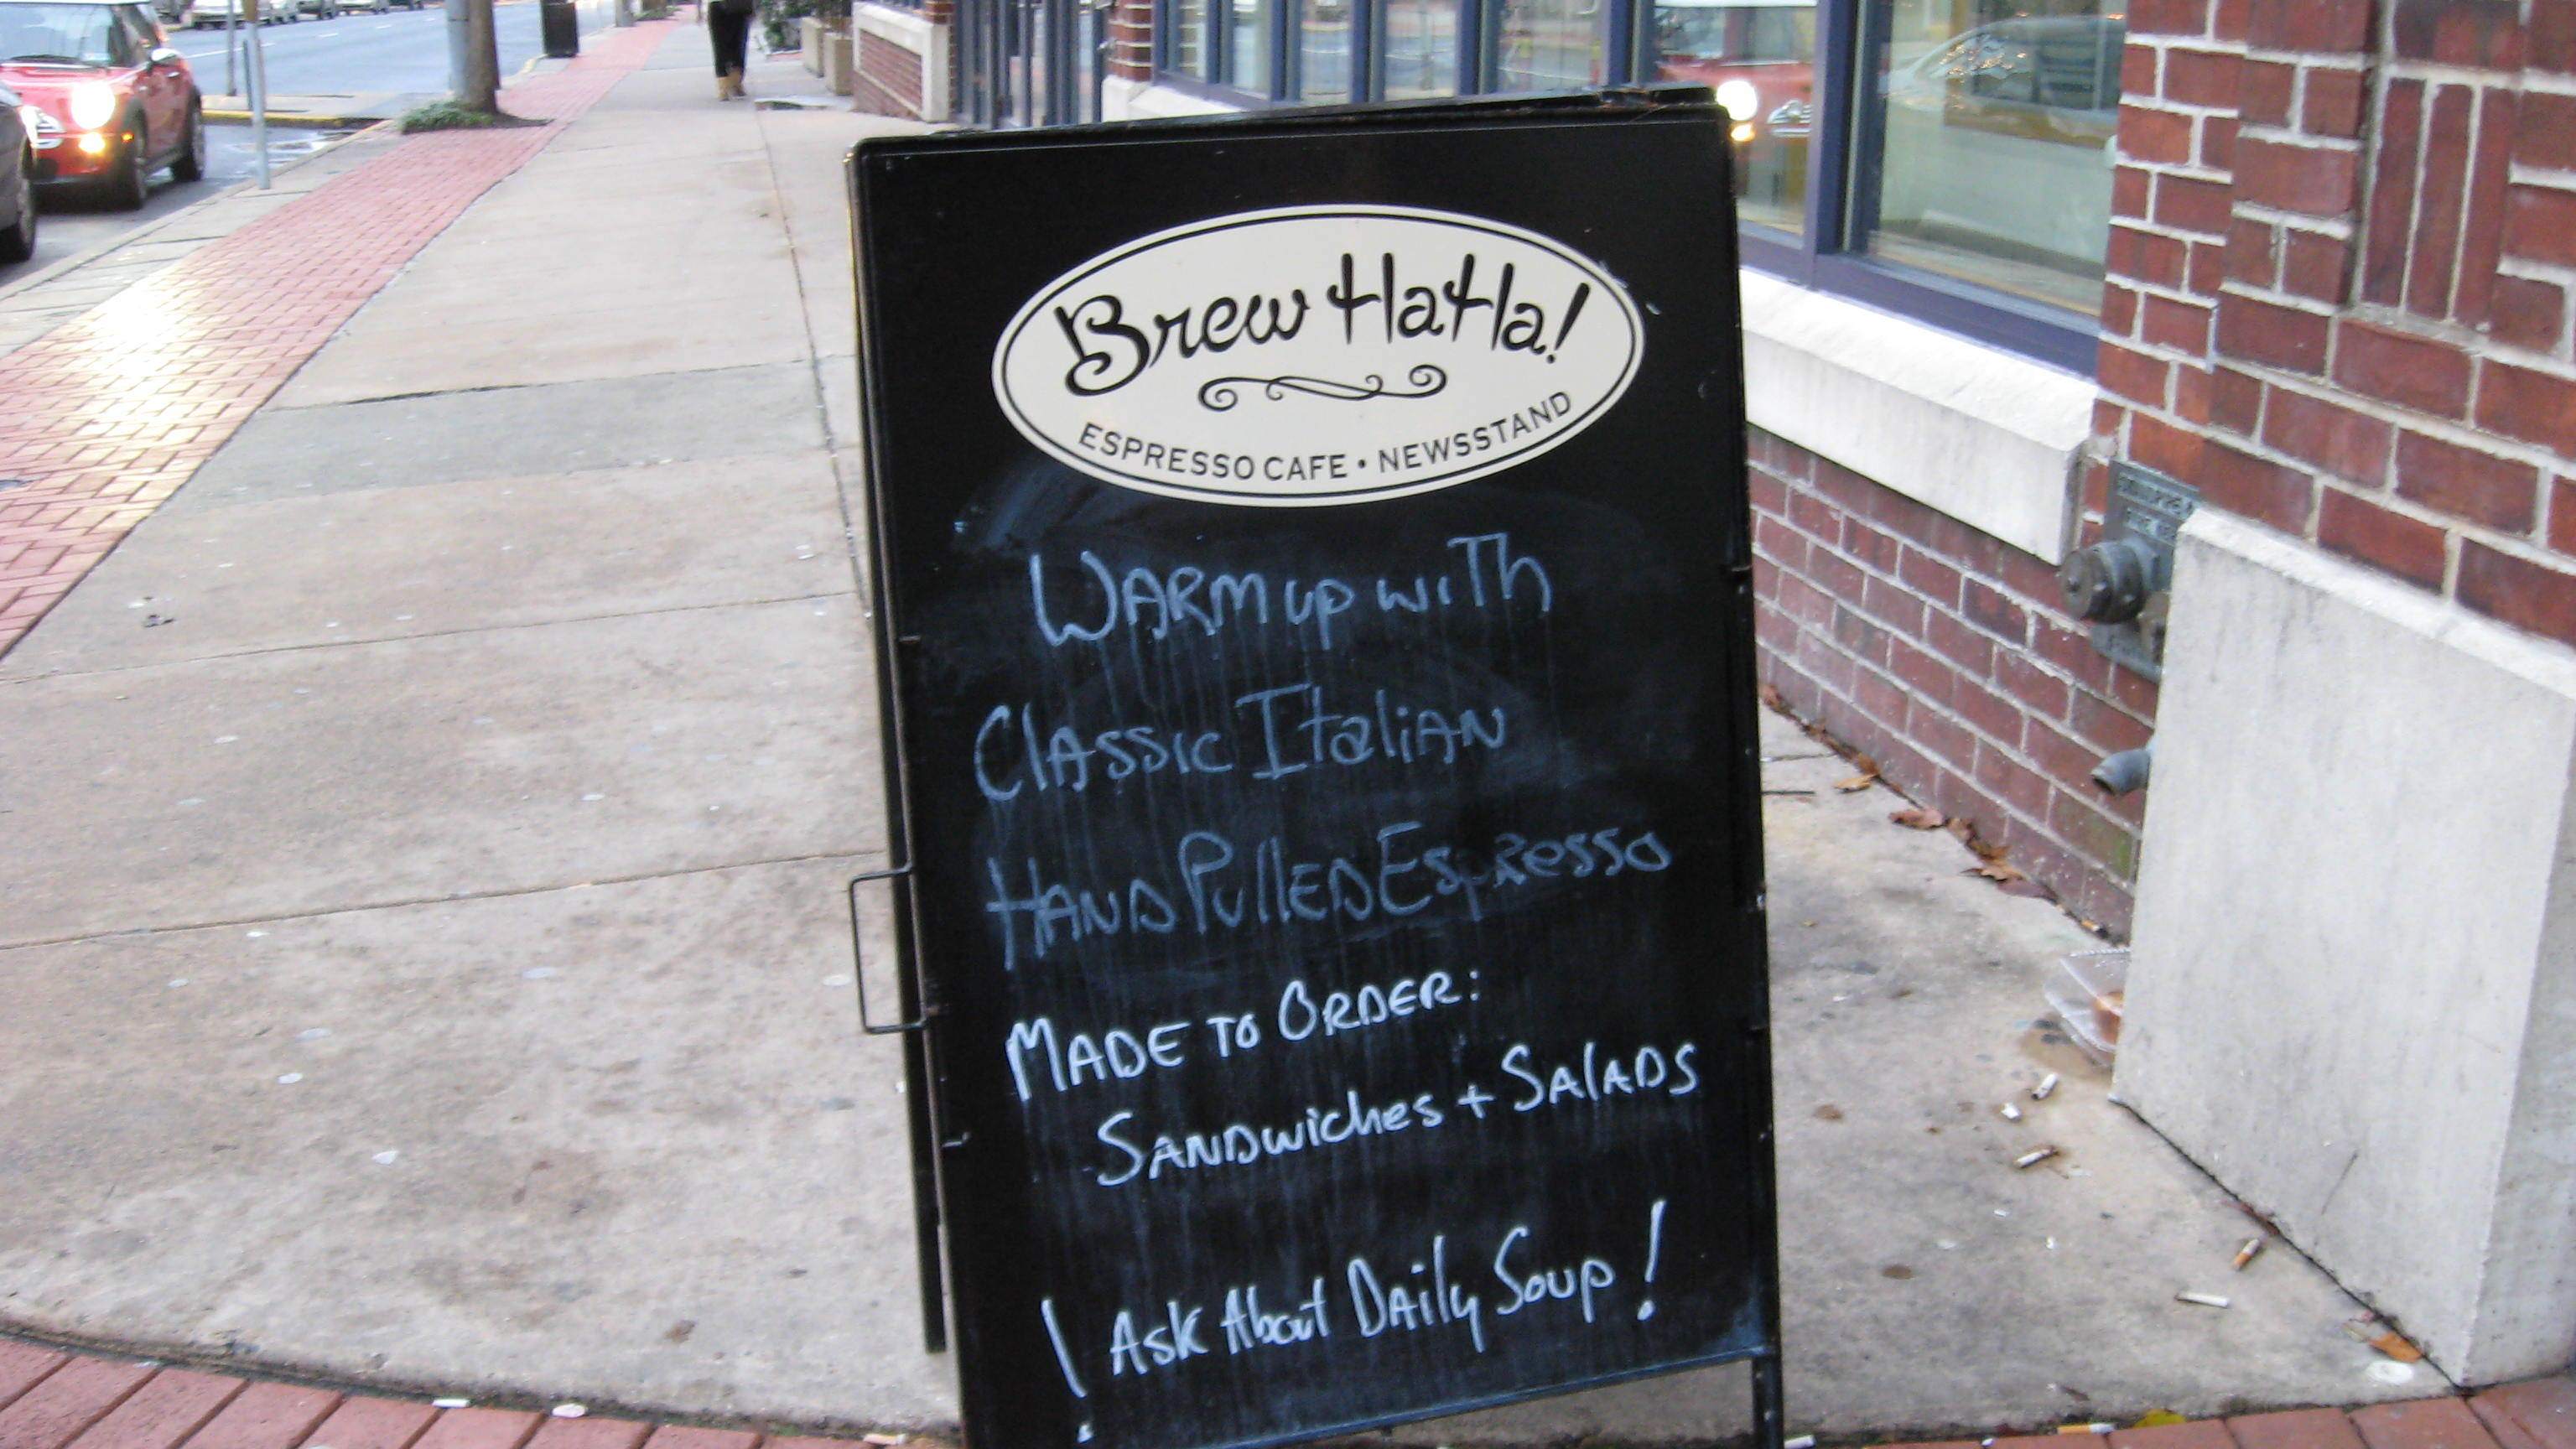 Brew HaHa!
ESPRESSO CAFE • NEWSSTAND
WARM up wiTh
ClAssic ItaliAN
HAND PullED EspResso
MADE TO ORDER:
SANDwiches + SAlADS
! Ask About DAily Soup!